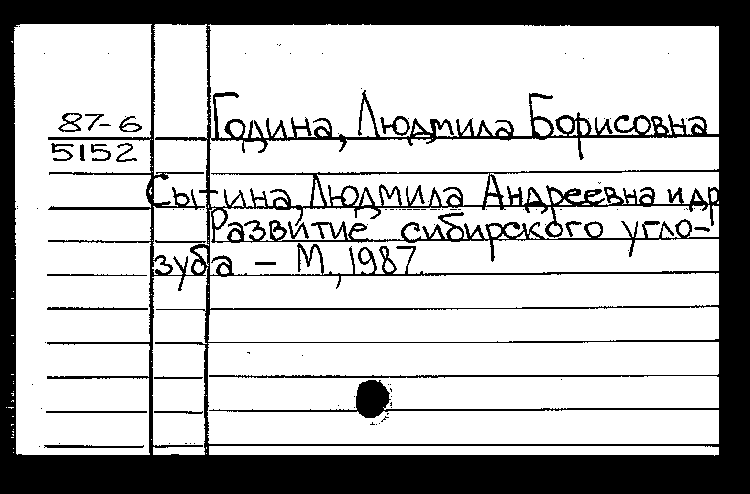 87-6 Година, Людмила Борисовна
5152
Сытина, Людмила Андреевна и др
Развитие сибирского угло-
зуба. – М., 1987.